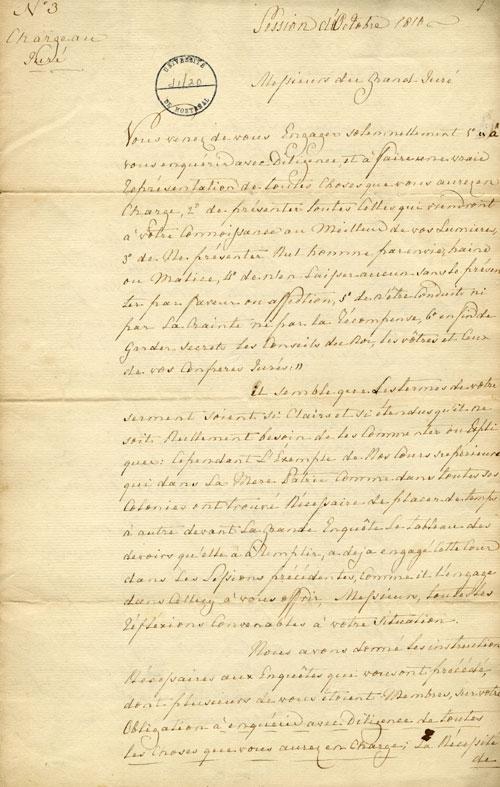 N° 3
Session d'Octobre 1810
Charge au
Juré
UNIVERSITÉ
DE MONTRÉAL
Messieurs du Grand Juré
Vous venez de vous Engager solemnellement 1° à
vous enquérir avec Diligence et à faire une vraie
Représentation de toutes Choses que vous aurez en
Charge, 2° de présenter toutes Celles qui viendront
à votre Connoissance au Meilleur de vos Lumieres,
3° de Ne présenter Nul homme par envie, haine
ou Malice, 4° de n'en Laisser aucun sans le présen
ter par faveur ou affection, 5° de n'être Conduit ni
par La Crainte ni par la Récompense, 6° enfin de
Garder secrets les Conseils du Roi, les vôtres et Ceux
de vos Confreres Jurés."
Il semble que les termes de votre
serment soient si Clairs et si étendus qu'il ne
soit Nullement besoin de les Commenter ou Expli
quer: Cependant L'Exemple de Nos Cours supérieures
qui dans La Mere Patrie Comme dans toutes ses
Colonies ont trouvé Nécessaire de placer de temps
à autre devant La Grande Enquête Le tableau des
devoirs qu'elle a à Remplir, a deja engagé Cette Cour
dans Les Sessions précédentes, Comme il L'engage
dans Celle cy à vous offrir, Messieurs, toutes les
Réfléxions Convenables à votre Situation.
Nous avons donné les instruction
Nécessaires aux Enquêtes que vous ont précédé,
dont plusieurs de vous étoient Membres, sur votre
Obligation à enquérir avec Diligence de toutes
les Choses que vous aurez en Charge; La Nécessité
de